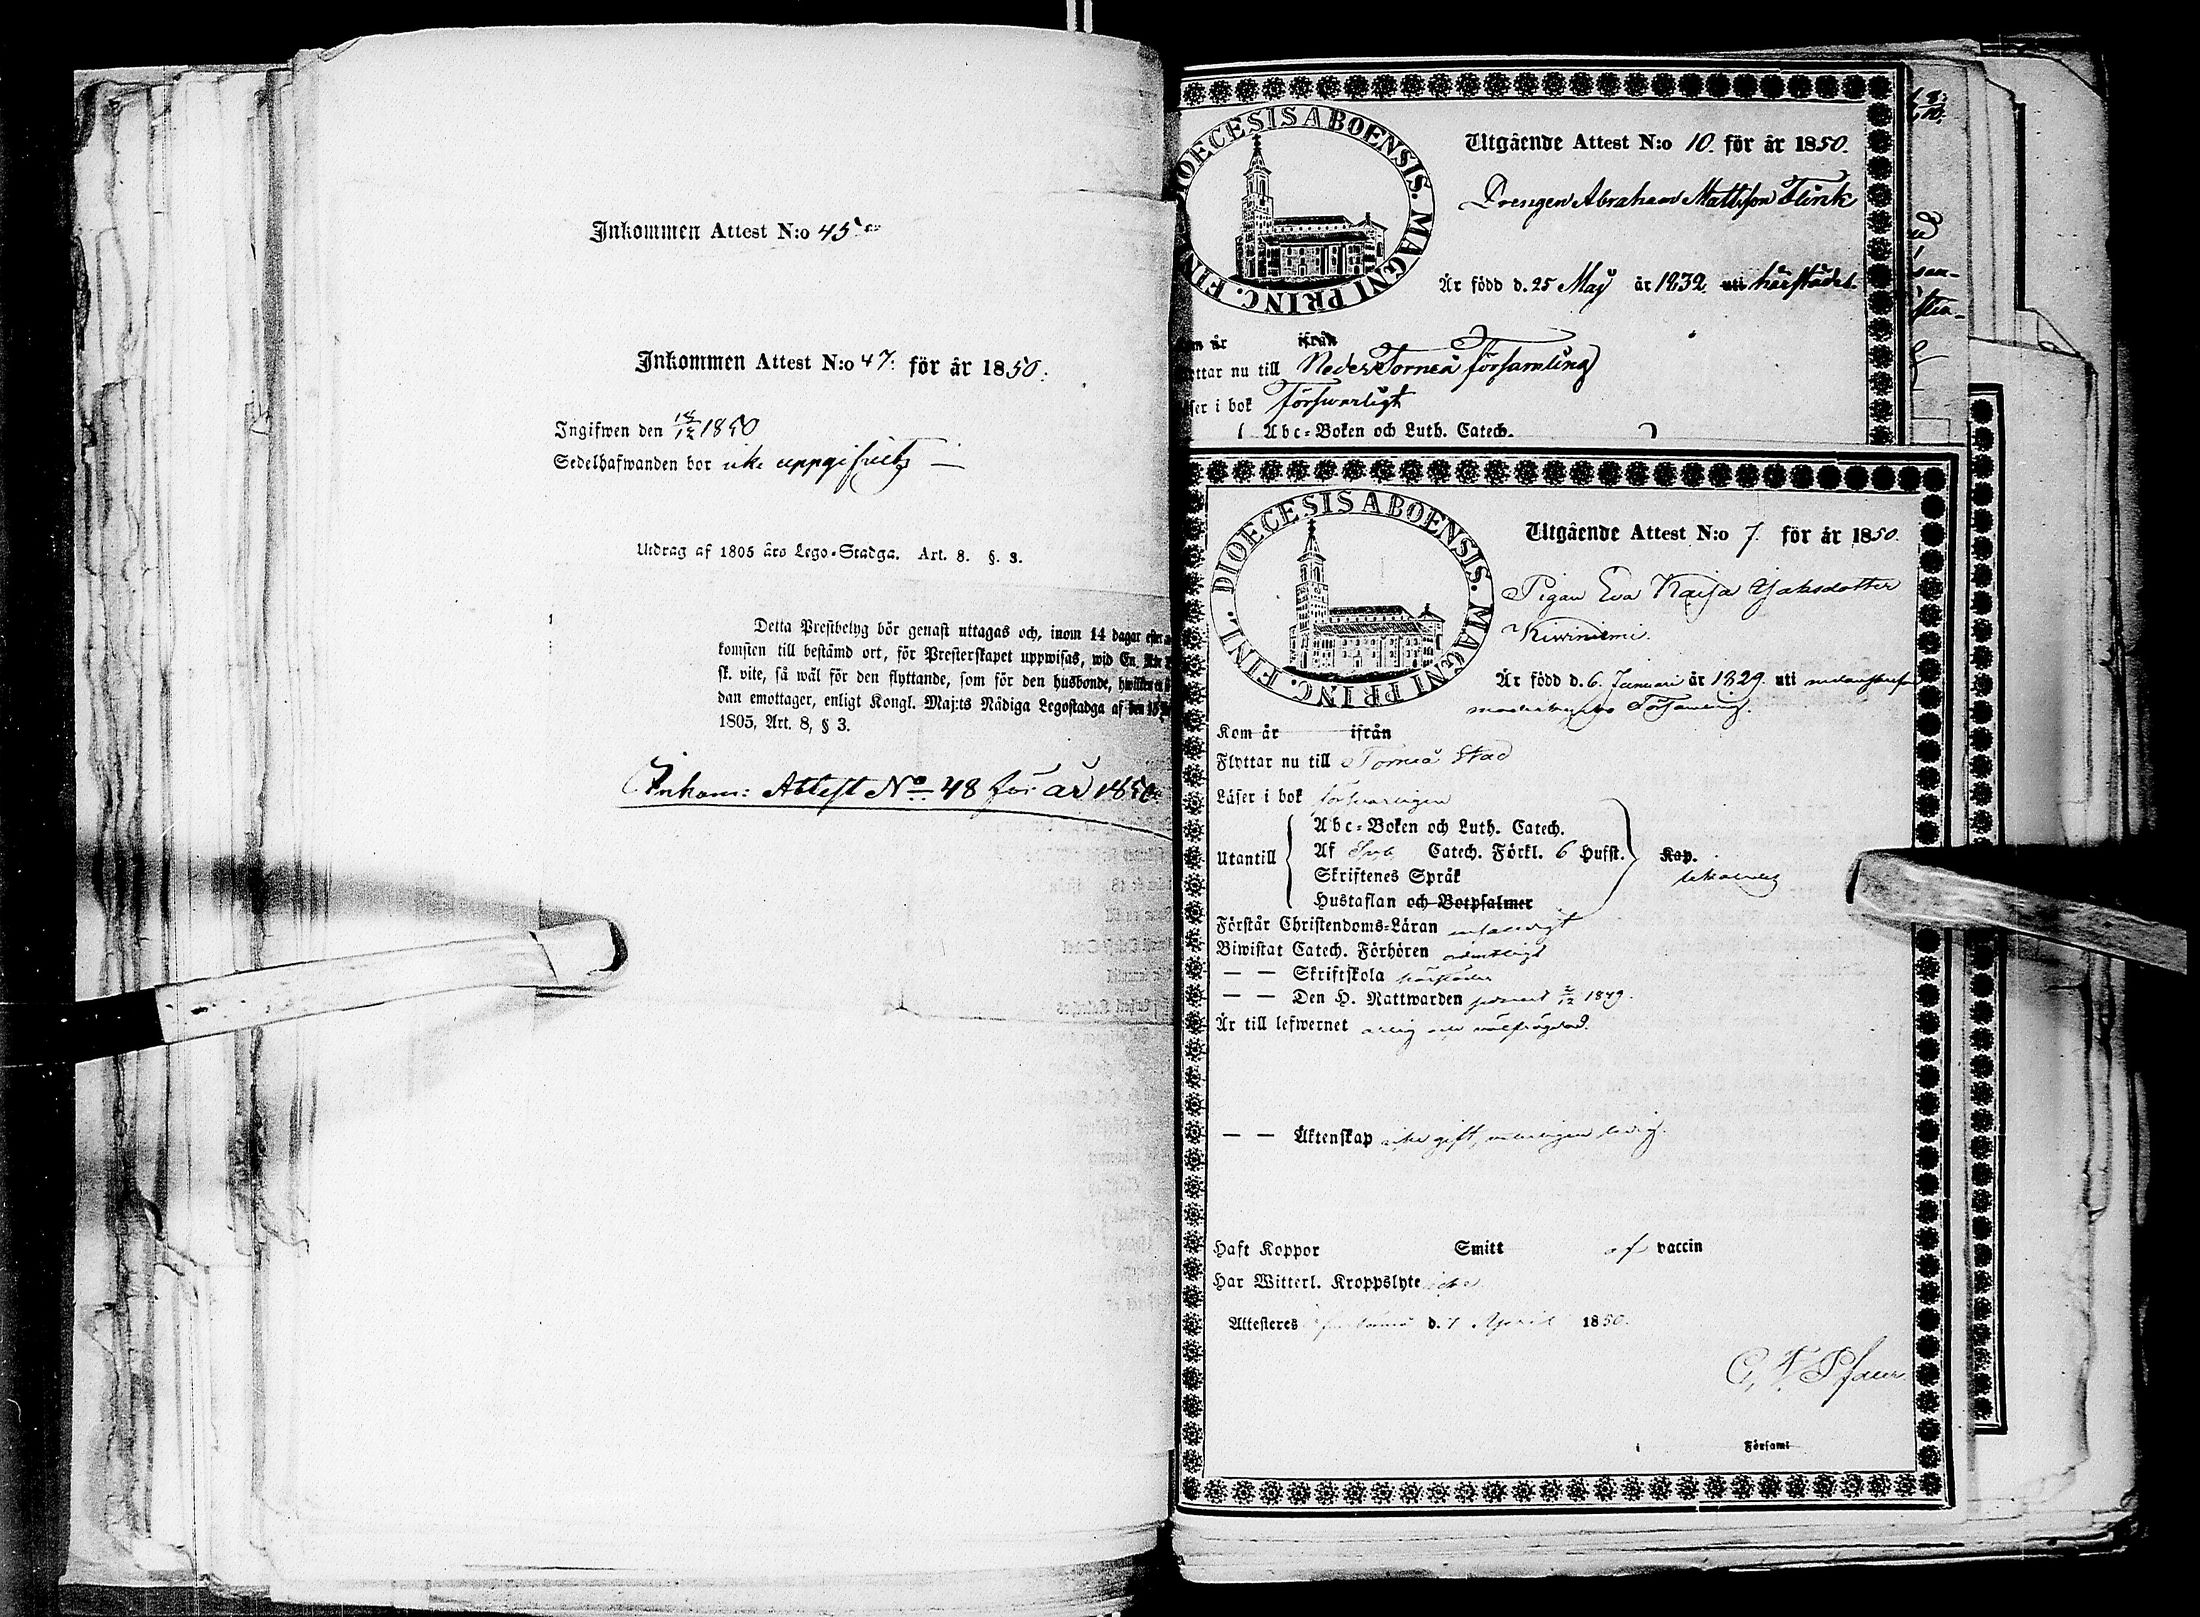 Inkommen Attest N:o 45
Inkommen Attest N:o 47. för år 1850.
Ingifwen den 18/12 1850
Sedelhafwanden bor icke uppgifvitz —
Utdrag af 1805 års Lego-Stadga. Art. 8. §. 3.
Detta Prestbetyg bör genast uttagas och, inom 14 dagar efter
komsten till bestämd ort, för Presterskapet uppwisas, wid En
sk. vite, så wäl för den flyttande, som för den husbonde,
dan emottager, enligt Kongl. Maj:ts Nådiga Legostadga af den 15
1805, Art. 8, § 3.
Inkom: Attest No 48 för år 1850.
DIOECESIS ABOENSIS. MAGNI PRINC. FIN
Utgående Attest N:o 10. för år 1850.
Drengen Abraham Mattsson Flink
Är född d. 25 Maj år 1832 uti härstädes.
år ifrån
nu till Neder Torneå Församling
i bok försvarligt
Abc-Boken och Luth. Catech.
DIOECESIS ABOENSIS. MAGNI PRINC. FINL.
Utgående Attest N:o 7. för år 1850.
Pigan Eva Kaisa Jakobsdotter
Kiviniemi.
Är född d. 6 Januari år 1829 uti
Församling.
Kom år ifrån
Flyttar nu till Torneå Stad
Läser i bok försvarligen
Abc-Boken och Luth. Catech.
Utantill Af Sveb. Catech. Förkl. 6 Hufst. Kap.
Skriftenes Språk
Hustaflan och Botpsalmer
Förstår Christendoms-Läran enfaldigt
Biwistat Catech. Förhören ordentligt
— — Skriftskola härstädes
— — Den H. Nattwarden senast 2/12 1849.
Är till lefwernet ärlig och välfrägdad.
— — Äktenskap icke gift, veterligen ledig.
Haft Koppor Smitt af vaccin
Har Witterl. Kroppslyte icke
Attesteres d. 1 April 1850.
Församl